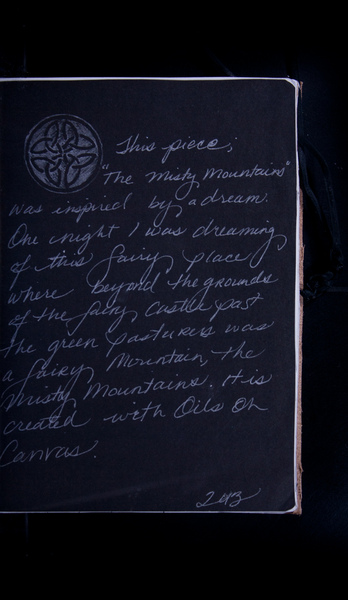 This piece,
"The Misty Mountains"
was inspired by a dream.
One night I was dreaming
of this fairy place
where beyond the grounds
of the fairy castle past
the green pastures was
a fairy Mountain, the
Misty Mountains. It is
created with Oils On
Canvas.